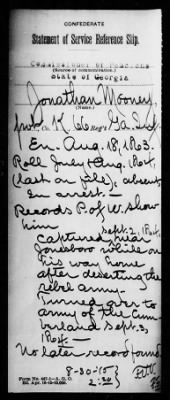 CONFEDERATE
Statement of Service Reference Slip.
Commissioner of Pensions
(Source of communication.)
State of Georgia
Jonathan Mooney,
(Name.)
Pvt., Co. K, 66 Reg't Ga. Inf.
En. Aug. 18, 1863.
Roll July & Aug. 1864,
(last on file), absent,
in arrest.
Records P. of W. show
him Sept. 2, 1864,
captured near
Jonesboro while on
his way home
after deserting the
rebel army.
Turned over to
army of the Cum-
berland Sept. 3,
1864.
No later record found.
8-30-15
2:30